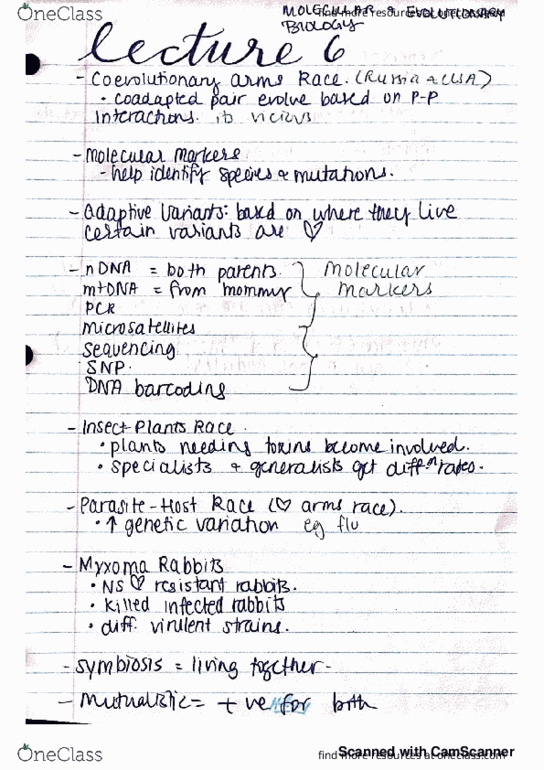 OneClass
find more resources at oneclass.com
MOLECULAR & EVOLUTIONARY
BIOLOGY
lecture 6
- Coevolutionary arms Race. (Russia & USA)
• coadapted pair evolve based on P-P
interactions. ib vicious
- Molecular Markers
- help identify species & mutations.
- Adaptive Variants: based on where they live
certain variants are ♡
- nDNA = both parents.
mtDNA = from mommy
PCR
microsatellites
sequencing
SNP.
DNA barcoding
molecular
markers
- Insect-Plants Race
• plants needing toxins become involved.
• specialists & generalists get diff rates.
- Parasite-Host Race (♡ arms race).
• ↑ genetic variation eg flu
- Myxoma Rabbits
• NS ♡ resistant rabbits.
• killed infected rabbits
• diff. virulent strains.
- symbiosis = living together-
- Mutualistic = + ve for both
OneClass
find more resources at oneclass.com
Scanned with CamScanner